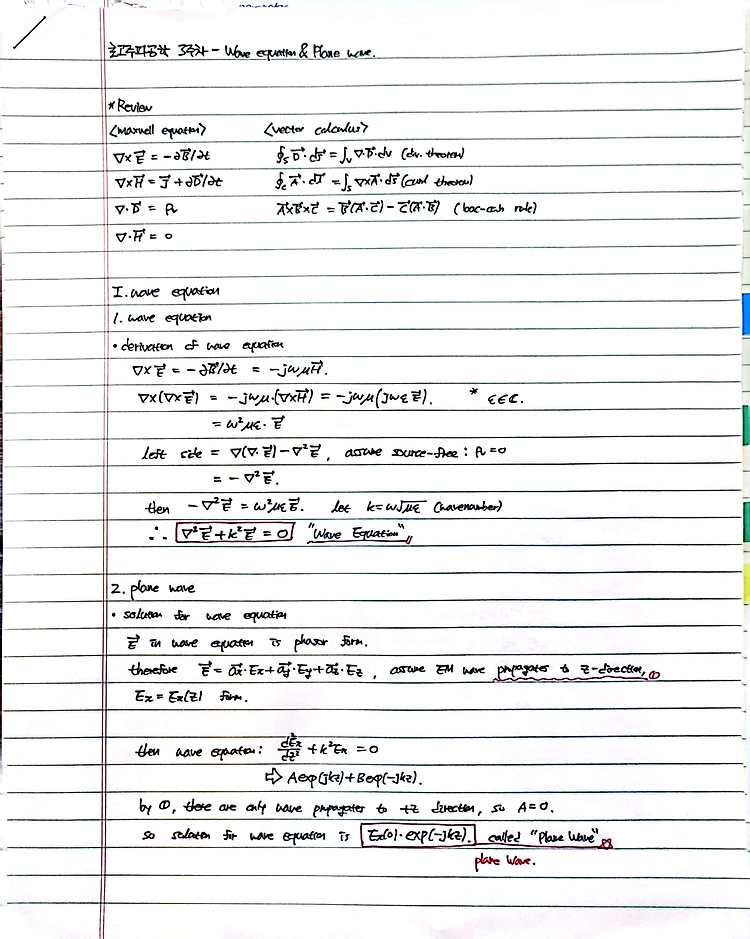 초고주파공학 3주차 - Wave equation & Plane wave.
* Review
<maxwell equation> <vector calculus>
∇×E⃗ = -∂B⃗/∂t ∮s D⃗·ds⃗ = ∫v ∇·D⃗·dv (div. theorem)
∇×H⃗ = J⃗ + ∂D⃗/∂t ∮c A⃗·dl⃗ = ∫s ∇×A⃗·ds⃗ (curl theorem)
∇·D⃗ = ρv A⃗×B⃗×C⃗ = B⃗(A⃗·C⃗) - C⃗(A⃗·B⃗) (bac-cab rule)
∇·H⃗ = 0
I. wave equation
1. wave equation
• derivation of wave equation
∇×E⃗ = -∂B⃗/∂t = -jωμH⃗.
∇×(∇×E⃗) = -jωμ·(∇×H⃗) = -jωμ(jωε E⃗). * ε∈ℂ.
= ω²με·E⃗
left side = ∇(∇·E⃗) - ∇²E⃗, assume source-free : ρv = 0
= -∇²E⃗.
then -∇²E⃗ = ω²με E⃗. let k = ω√με (wavenumber)
∴ ∇²E⃗ + k²E⃗ = 0 "Wave Equation"
2. plane wave
• solution for wave equation
E⃗ in wave equation is phasor form.
therefore E⃗ = a⃗x·Ex + a⃗y·Ey + a⃗z·Ez, assume EM wave propagates to z-direction, ①
Ex = Ex(z) form.
then wave equation: d²Ex/dz² + k²Ex = 0
⇨ A exp(jkz) + B exp(-jkz).
by ①, there are only wave propagates to +z direction, so A = 0.
so solution for wave equation is Ex(0)·exp(-jkz). called "Plane Wave"
plane wave.